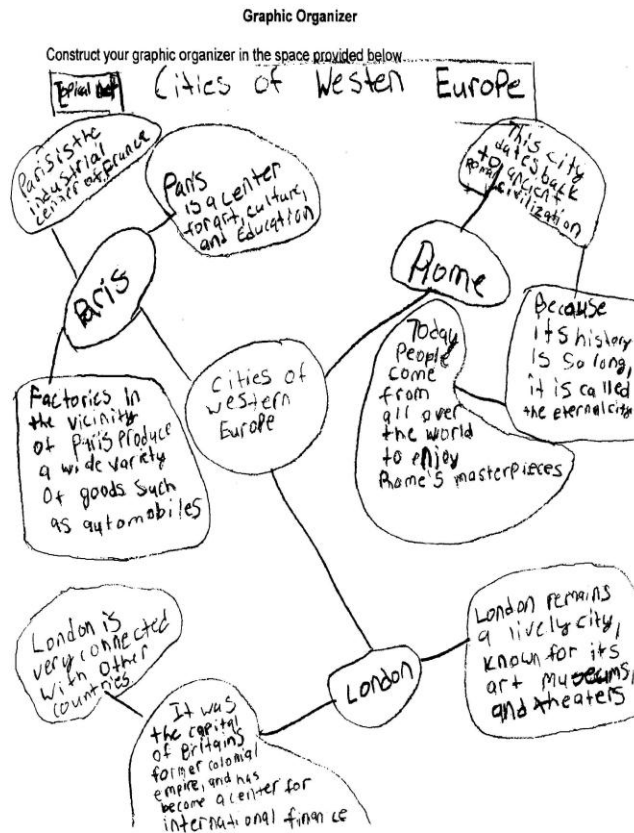 Graphic Organizer
Construct your graphic organizer in the space provided below
Topical Net
Cities of Westen Europe
Paris is the
industrial
center of france
Paris
is a center
for art, culture,
and Education
This city
dates back
to ancient
Roman
civilization
Paris
Rome
Because
its history
is so long,
it is called
the eternal city
Today
People
come
from
all over
the world
to enjoy
Rome's masterpieces
Cities of
western
Europe
Factories in
the vicinity
of Paris produce
a wide variety
of goods such
as automobiles
London is
very connected
with other
countries.
London
London remains
a lively city,
known for its
art museums,
and theaters
It was
the capital
of Britains
former colonial
empire, and has
become a center for
international finance